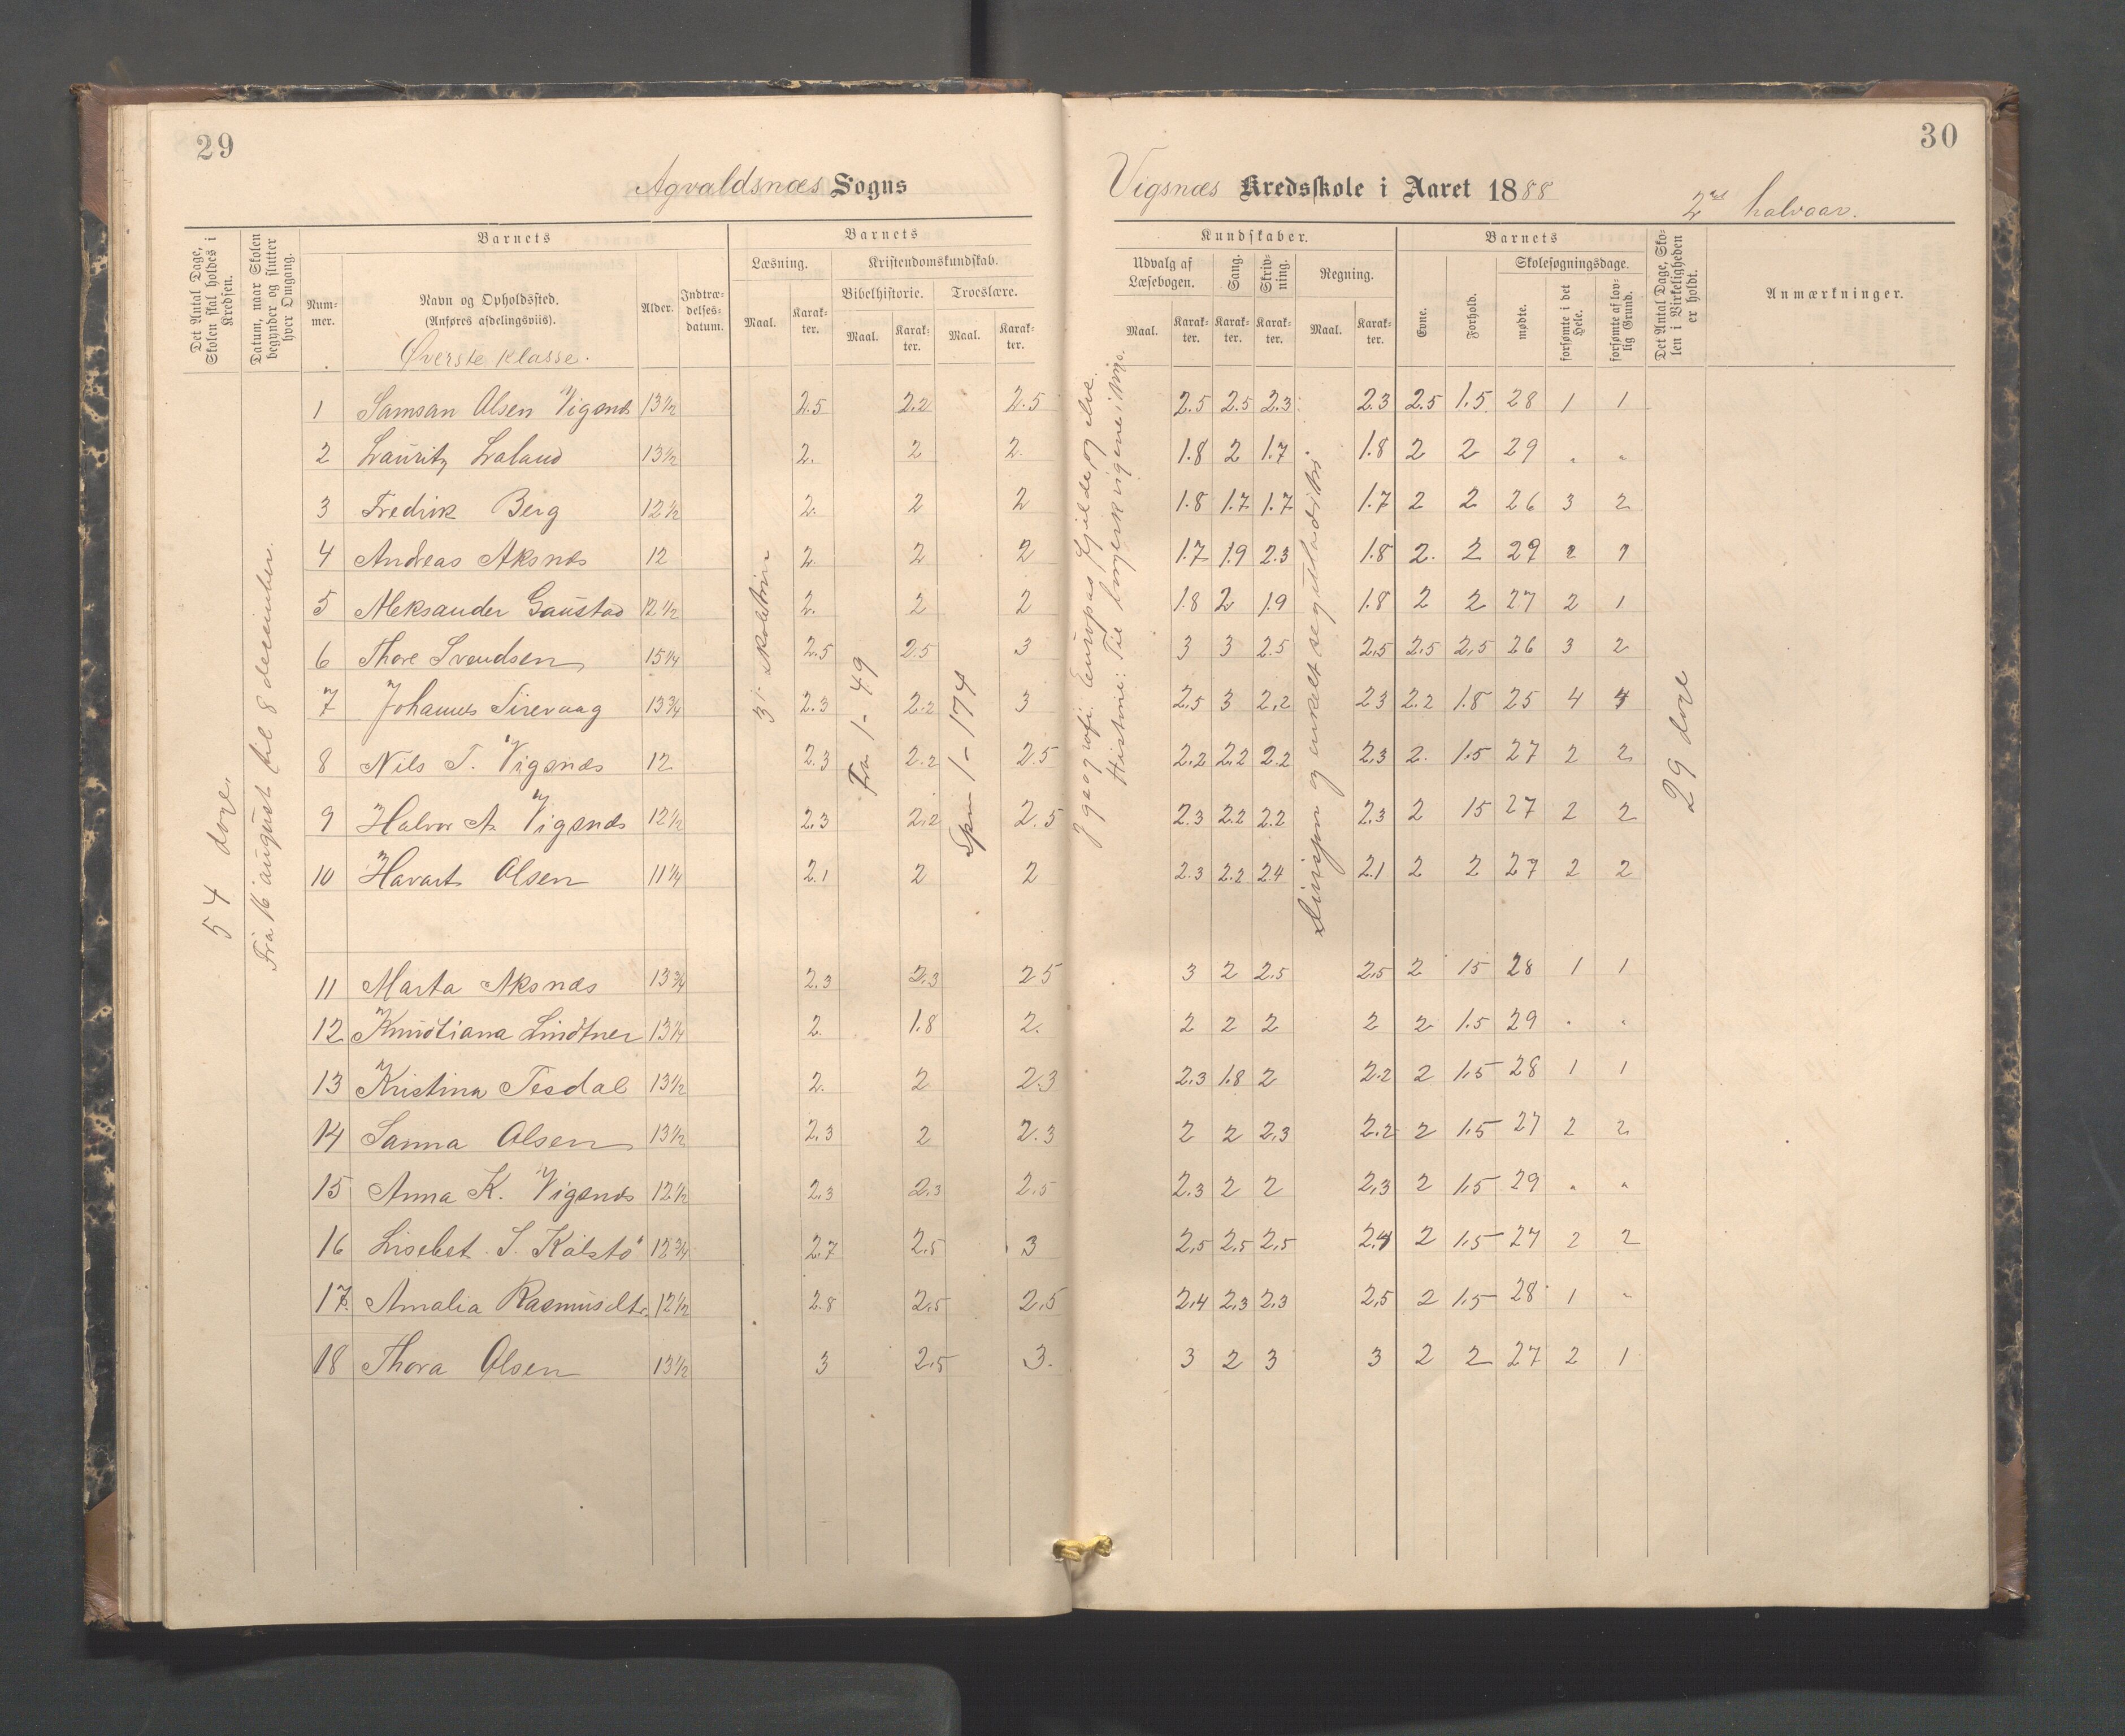 29
30
Agvaldsnæs Sogns
Vigsnæs Kredsskole i Aaret 1888
2det halvaar.
Det Antal Dage, Skolen skal holdes i Kredsen.
Datum, naar Skolen begynder og slutter hver Omgang.
Barnets
Num-
mer.
Navn og Opholdssted.
(Anføres afdelingsviis).
Øverste klasse.
Alder.
Indtræ-
delses-
datum.
Barnets
Læsning.
Maal.
Karak-
ter.
Kristendomskundskab.
Bibelhistorie.
Maal.
Karak-
ter.
Troeslære.
Maal.
Karak-
ter.
Kundskaber.
Udvalg af
Læsebogen.
Maal.
Karak-
ter.
Sang.
Karak-
ter.
Skriv-
ning.
Karak-
ter.
Regning.
Maal.
Karak-
ter.
Barnets
Evne.
Forhold.
Skolesøgningsdage.
mødte.
forsømte i det Hele.
forsømte af lov-
lig Grund.
Det Antal Dage, Sko-
len i Virkeligheden
er holdt.
Anmærkninger.
54 dage.
Fra 16 august til 8 december.
3die skoletrin
Fra 1 - 49
Spm 1 - 174
I geografi: Europas fjelde og elve.
Historie: Til borgerkrigene i Norge.
Divisjon og enkelt
29 dage
1 Samson Olsen Vigsnes 13 1/2 2.5 2.2 2.5 2.5 2.5 2.3 2.3 2.5 1.5 28 1 1
2 Lauritz Laland 13 1/2 2. 2 2. 1.8 2 1.7 1.8 2 2 29 " "
3 Fredrik Berg 12 1/2 2. 2 2 1.8 1.7 1.7 1.7 2 2 26 3 2
4 Andreas Aksnæs 12 2. 2 2 1.7 1.9 2.3 1.8 2. 2 29
5 Aleksander Gaustad 12 1/2 2. 2 2 1.8 2 1.9 1.8 2 2 27 2 1
6 Thore Svendsen 15 1/4 2.5 2.5 3 3 3 2.5 2.5 2.5 2.5 26 3 2
7 Johannes Sirevaag 13 3/4 2.3 2.2 3 2.5 3 2.2 2.3 2.2 1.8 25 4 4
8 Nils T. Vigsnæs 12 2.3 2.2 2.5 2.2 2.2 2.2 2.3 2. 1.5 27 2 2
9 Halvor A. Vigsnæs 12 1/2 2.3 2.2 2.5 2.3 2.2 2.2 2.3 2 15 27 2 2
10 Havart Olsen 11 1/4 2.1 2 2 2.3 2.2 2.4 2.1 2 2 27 2 2
11 Marta Aksnæs 13 3/4 2.3 2.3 25 3 2 2.5 2.5 2 15 28 1 1
12 Knudtiana Lindtner 13 1/4 2. 1.8 2. 2 2 2 2 2 1.5 29 " "
13 Kristina Tesdal 13 1/2 2. 2 2.3 2.3 1.8 2 2.2 2 1.5 28 1 1
14 Sanna Olsen 13 1/2 2.3 2 2.3 2 2 2.3 2.2 2 1.5 27 2 2
15 Anna K. Vigsnæs 12 1/2 2.3 2.3 2.5 2.3 2 2 2.3 2 1.5 29 " "
16 Lisebet S. Kalstø 12 3/4 2.7 2.5 3 2.5 2.5 2.5 2.4 2 1.5 27 2 2
17. Amalia Rasmusdtr. 12 1/2 2.8 2.5 2.5 2.4 2.3 2.3 2.5 2 1.5 28 1 "
18 Thora Olsen 13 1/2 3 2.5 3. 3 2 3 3 2 2 27 2 1